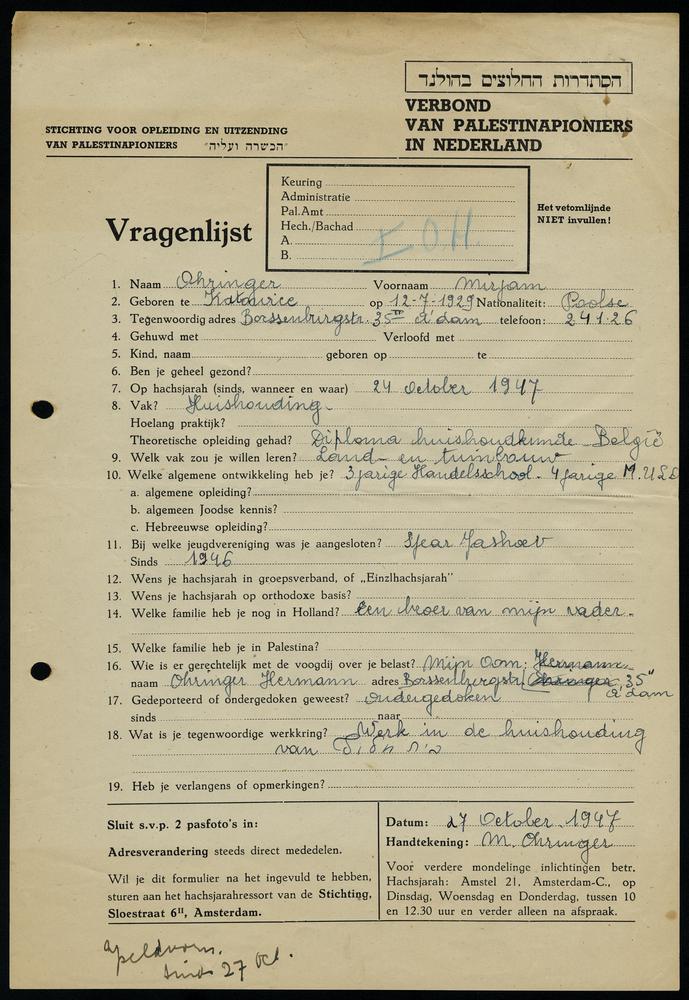 הסתדרות החלוצים בהולנד
VERBOND
VAN PALESTINAPIONIERS
IN NEDERLAND
STICHTING VOOR OPLEIDING EN UITZENDING
VAN PALESTINAPIONIERS "הכשרה ועליה"
Keuring
Administratie
Pal.Amt
Hech./Bachad
A.
B.
I O.H.
Het vetomlijnde
NIET invullen!
Vragenlijst
1. Naam Ohringer Voornaam Mirjam
2. Geboren te Katowice op 12-7-1929 Nationaliteit: Poolse
3. Tegenwoordig adres Borssenburgstr. 35 II A'dam telefoon: 24126
4. Gehuwd met Verloofd met
5. Kind, naam geboren op te
6. Ben je geheel gezond?
7. Op hachsjarah (sinds, wanneer en waar) 24 october 1947
8. Vak? Huishouding.
Hoelang praktijk?
Theoretische opleiding gehad? Diploma huishoudkunde België
9. Welk vak zou je willen leeren? Land- en tuinbouw
10. Welke algemene ontwikkeling heb je? 3 jarige Handelsschool. 4 jarige M.U.L.O
a. algemene opleiding?
b. algemeen Joodse kennis?
c. Hebreeuwse opleiding?
11. Bij welke jeugdvereniging was je aangesloten? Sjear Jashoev
Sinds 1946
12. Wens je hachsjarah in groepsverband, of „Einzlhachsjarah"
13. Wens je hachsjarah op orthodoxe basis?
14. Welke familie heb je nog in Holland? Een broer van mijn vader.
15. Welke familie heb je in Palestina?
16. Wie is er gerechtelijk met de voogdij over je belast? Mijn Oom: Hermann
naam Ohringer Hermann adres Borssenburgstr. Ohringer 35" A'dam
17. Gedeporteerd of ondergedoken geweest? ondergedoken
sinds naar
18. Wat is je tegenwoordige werkkring? Werk in de huishouding
van
19. Heb je verlangens of opmerkingen?
Sluit s.v.p. 2 pasfoto's in:
Adresverandering steeds direct mededelen.
Wil je dit formulier na het ingevuld te hebben,
sturen aan het hachsjarahressort van de Stichting,
Sloestraat 6II, Amsterdam.
Datum: 27 October 1947
Handtekening: M. Ohringer
Voor verdere mondelinge inlichtingen betr.
Hachsjarah: Amstel 21, Amsterdam-C., op
Dinsdag, Woensdag en Donderdag, tussen 10
en 12.30 uur en verder alleen na afspraak.
Apeldoorn.
sinds 27 oct.